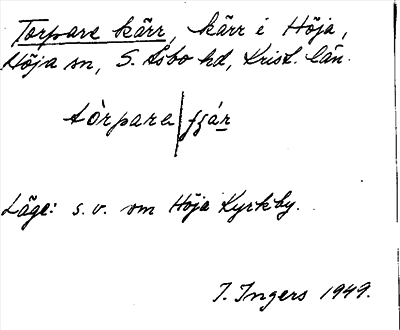 Torpare kärr, kärr i Höja,
Höja sn, S. Åsbo hd, Krist. län.
tòrpare|fjár
Läge: s.v. om Höja Kyrkby.
I. Ingers 1949.